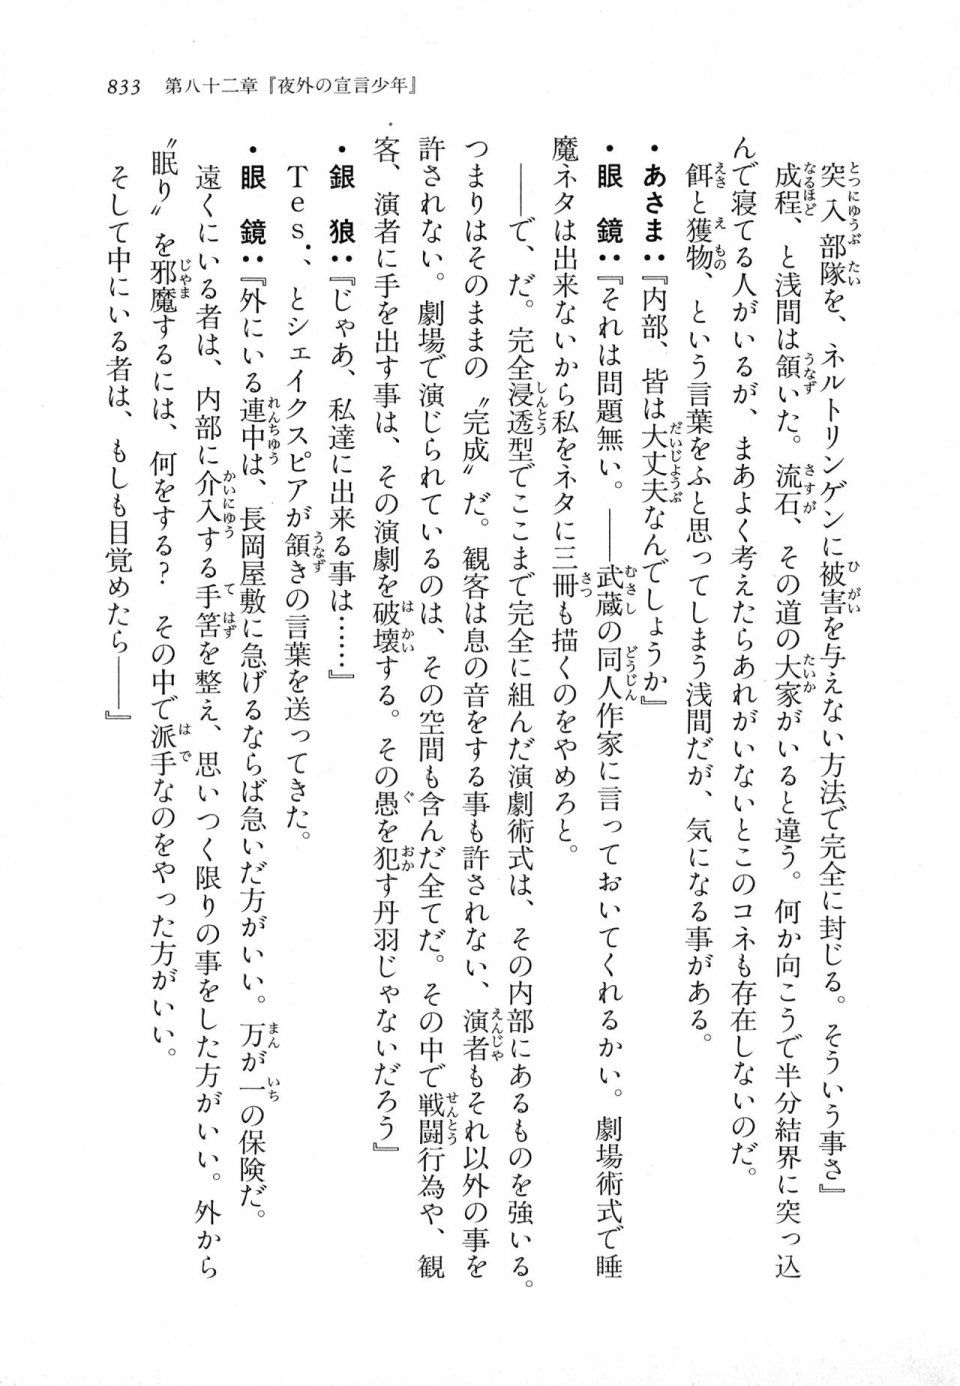 833　第八十二章『夜外の宣言少年』
突入部隊を、ネルトリンゲンに被害を与えない方法で完全に封じる。そういう事さ』
成程、と浅間は頷いた。流石、その道の大家がいると違う。何か向こうで半分結界に突っ込
んで寝てる人がいるが、まあよく考えたらあれがいないとこのコネも存在しないのだ。
餌と獲物、という言葉をふと思ってしまう浅間だが、気になる事がある。
・あさま：『内部、皆は大丈夫なんでしょうか』
・眼　鏡：『それは問題無い。――武蔵の同人作家に言っておいてくれるかい。劇場術式で睡
魔ネタは出来ないから私をネタに三冊も描くのをやめろと。
――で、だ。完全浸透型でここまで完全に組んだ演劇術式は、その内部にあるものを強いる。
つまりはそのままの〝完成〟だ。観客は息の音をする事も許されない、演者もそれ以外の事を
許されない。劇場で演じられているのは、その空間も含んだ全てだ。その中で戦闘行為や、観
客、演者に手を出す事は、その演劇を破壊する。その愚を犯す丹羽じゃないだろう』
・銀　狼：『じゃあ、私達に出来る事は……』
Ｔｅｓ．、とシェイクスピアが頷きの言葉を送ってきた。
・眼　鏡：『外にいる連中は、長岡屋敷に急げるならば急いだ方がいい。万が一の保険だ。
遠くにいる者は、内部に介入する手筈を整え、思いつく限りの事をした方がいい。外から
〝眠り〟を邪魔するには、何をする？　その中で派手なのをやった方がいい。
そして中にいる者は、もしも目覚めたら――』